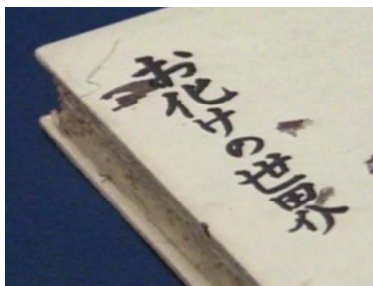 お化けの世界